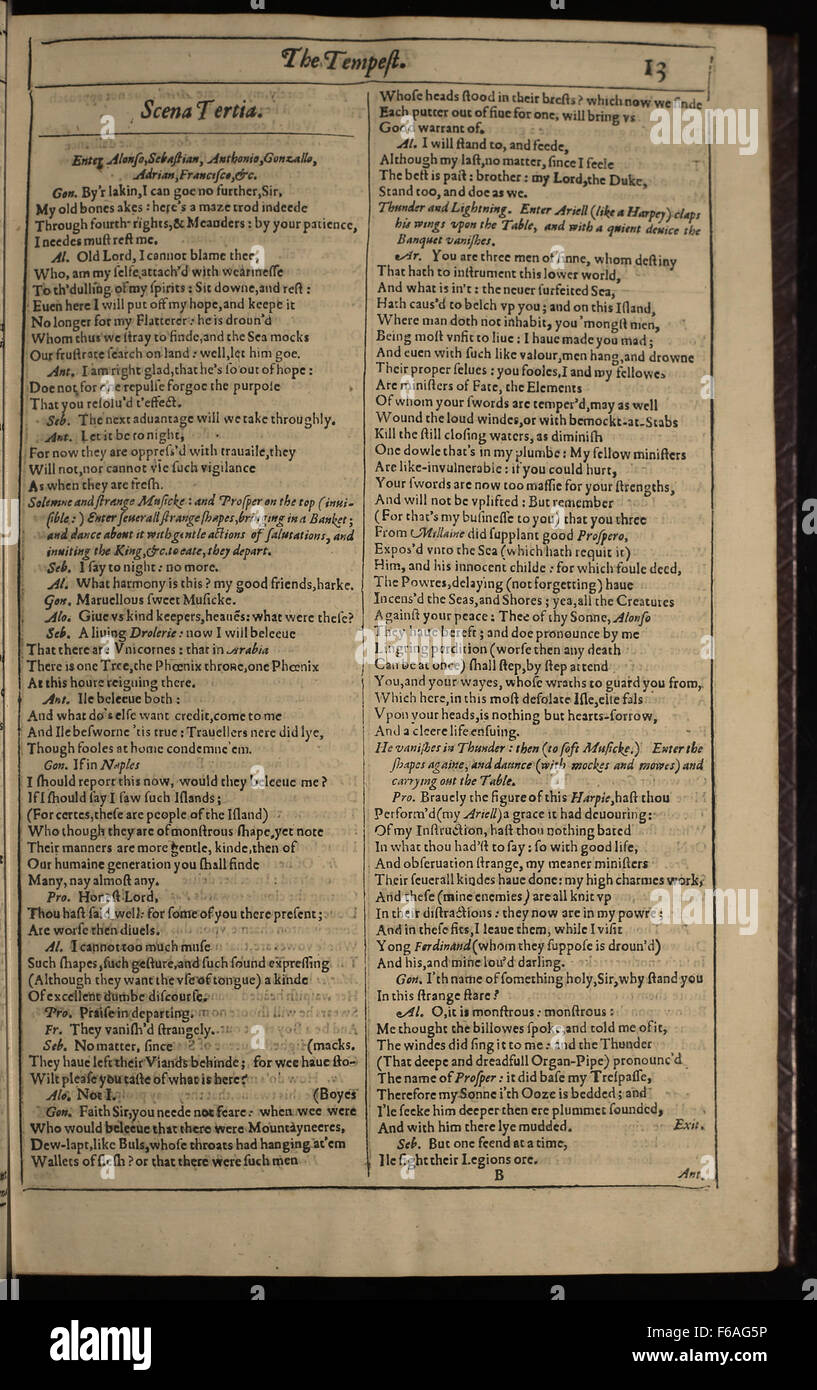 The Tempeſt.
13
Scena Tertia.
Enter Alonſo, Sebaſtian, Anthonio, Gonzallo,
Adrian, Franciſco, &c.
Gon. By'r lakin, I can goe no further, Sir,
My old bones akes: here's a maze trod indeede
Through fourth-rights, & Meanders: by your patience,
I needes muſt reſt me.
Al. Old Lord, I cannot blame thee,
Who, am my ſelfe attach'd with wearineſſe
To th'dulling of my ſpirits: Sit downe, and reſt:
Euen here I will put off my hope, and keepe it
No longer for my Flatterer: he is droun'd
Whom thus we ſtray to finde, and the Sea mocks
Our fruſtrate ſearch on land: well, let him goe.
Ant. I am right glad, that he's ſo out of hope:
Doe not for one repulſe forgoe the purpoſe
That you reſolu'd t'effect.
Seb. The next aduantage will we take throughly.
Ant. Let it be to night,
For now they are oppreſs'd with trauaile, they
Will not, nor cannot vſe ſuch vigilance
As when they are freſh.
Solemne and ſtrange Muſicke: and Proſper on the top (inui-
ſible:) Enter ſeuerall ſtrange ſhapes, bringing in a Banket;
and dance about it with gentle actions of ſalutations, and
inuiting the King, &c. to eate, they depart.
Seb. I ſay to night: no more.
Al. What harmony is this? my good friends, harke.
Gon. Maruellous ſweet Muſicke.
Alo. Giue vs kind keepers, heauēs: what were theſe?
Seb. A liuing Drolerie: now I will beleeue
That there are Vnicornes: that in Arabia
There is one Tree, the Phœnix throne, one Phœnix
At this houre reigning there.
Ant. Ile beleeue both:
And what do's elſe want credit, come to me
And Ile beſworne 'tis true: Trauellers nere did lye,
Though fooles at home condemne 'em.
Gon. If in Naples
I ſhould report this now, would they beleeue me?
If I ſhould ſay I ſaw ſuch Iſlands;
(For certes, theſe are people of the Iſland)
Who though they are of monſtrous ſhape, yet note
Their manners are more gentle, kinde, then of
Our humaine generation you ſhall finde
Many, nay almoſt any.
Pro. Honeſt Lord,
Thou haſt ſaid well: for ſome of you there preſent;
Are worſe then diuels.
Al. I cannot too much muſe
Such ſhapes, ſuch geſture, and ſuch ſound expreſſing
(Although they want the vſe of tongue) a kinde
Of excellent dumbe diſcourſe.
Pro. Praiſe in departing.
Fr. They vaniſh'd ſtrangely.
Seb. No matter, ſince (macks.
They haue left their Viands behinde; for wee haue ſto-
Wilt pleaſe you taſte of what is here?
Alo. Not I. (Boyes
Gon. Faith Sir, you neede not feare: when wee were
Who would beleeue that there were Mountayneeres,
Dew-lapt, like Buls, whoſe throats had hanging at'em
Wallets of fleſh? or that there were ſuch men
Whoſe heads ſtood in their breſts? which now we finde
Each putter out of fiue for one, will bring vs
Good warrant of.
Al. I will ſtand to, and feede,
Although my laſt, no matter, ſince I feele
The beſt is paſt: brother: my Lord, the Duke,
Stand too, and doe as we.
Thunder and Lightning. Enter Ariell (like a Harpey) claps
his wings vpon the Table, and with a quient deuice the
Banquet vaniſhes.
Ar. You are three men of ſinne, whom deſtiny
That hath to inſtrument this lower world,
And what is in't: the neuer ſurfeited Sea,
Hath caus'd to belch vp you; and on this Iſland,
Where man doth not inhabit, you 'mongſt men,
Being moſt vnfit to liue: I haue made you mad;
And euen with ſuch like valour, men hang, and drowne
Their proper ſelues: you fooles, I and my fellowes
Are miniſters of Fate, the Elements
Of whom your ſwords are temper'd, may as well
Wound the loud windes, or with bemockt-at-Stabs
Kill the ſtill cloſing waters, as diminiſh
One dowle that's in my plumbe: My fellow miniſters
Are like-invulnerable: if you could hurt,
Your ſwords are now too maſſie for your ſtrengths,
And will not be vplifted: But remember
(For that's my buſineſſe to you) that you three
From Millaine did ſupplant good Proſpero,
Expos'd vnto the Sea (which hath requit it)
Him, and his innocent childe: for which foule deed,
The Powres, delaying (not forgetting) haue
Incens'd the Seas, and Shores; yea, all the Creatures
Againſt your peace: Thee of thy Sonne, Alonſo
They haue bereft; and doe pronounce by me
Lingring perdition (worſe then any death
Can be at once) ſhall ſtep, by ſtep attend
You, and your wayes, whoſe wraths to guard you from,
Which here, in this moſt deſolate Iſle, elſe fals
Vpon your heads, is nothing but hearts-ſorrow,
And a cleere life enſuing.
He vaniſhes in Thunder: then (to ſoft Muſicke.) Enter the
ſhapes againe, and daunce (with mockes and mowes) and
carrying out the Table.
Pro. Brauely the figure of this Harpie, haſt thou
Perform'd (my Ariell) a grace it had deuouring:
Of my Inſtruction, haſt thou nothing bated
In what thou had'ſt to ſay: ſo with good life,
And obſeruation ſtrange, my meaner miniſters
Their ſeuerall kindes haue done: my high charmes work,
And theſe (mine enemies) are all knit vp
In their diſtractions: they now are in my powre;
And in theſe fits, I leaue them, while I viſit
Yong Ferdinand (whom they ſuppoſe is droun'd)
And his, and mine lou'd darling.
Gon. I'th name of ſomething holy, Sir, why ſtand you
In this ſtrange ſtare?
Al. O, it is monſtrous: monſtrous:
Me thought the billowes ſpoke, and told me of it,
The windes did ſing it to me: and the Thunder
(That deepe and dreadfull Organ-Pipe) pronounc'd
The name of Proſper: it did baſe my Treſpaſſe,
Therefore my Sonne i'th Ooze is bedded; and
I'le ſeeke him deeper then ere plummet ſounded,
And with him there lye mudded. Exit.
Seb. But one feend at a time,
Ile fight their Legions ore.
B
Ant.
alamy stock photo
alamy
F6AG5P
www.alamy.com